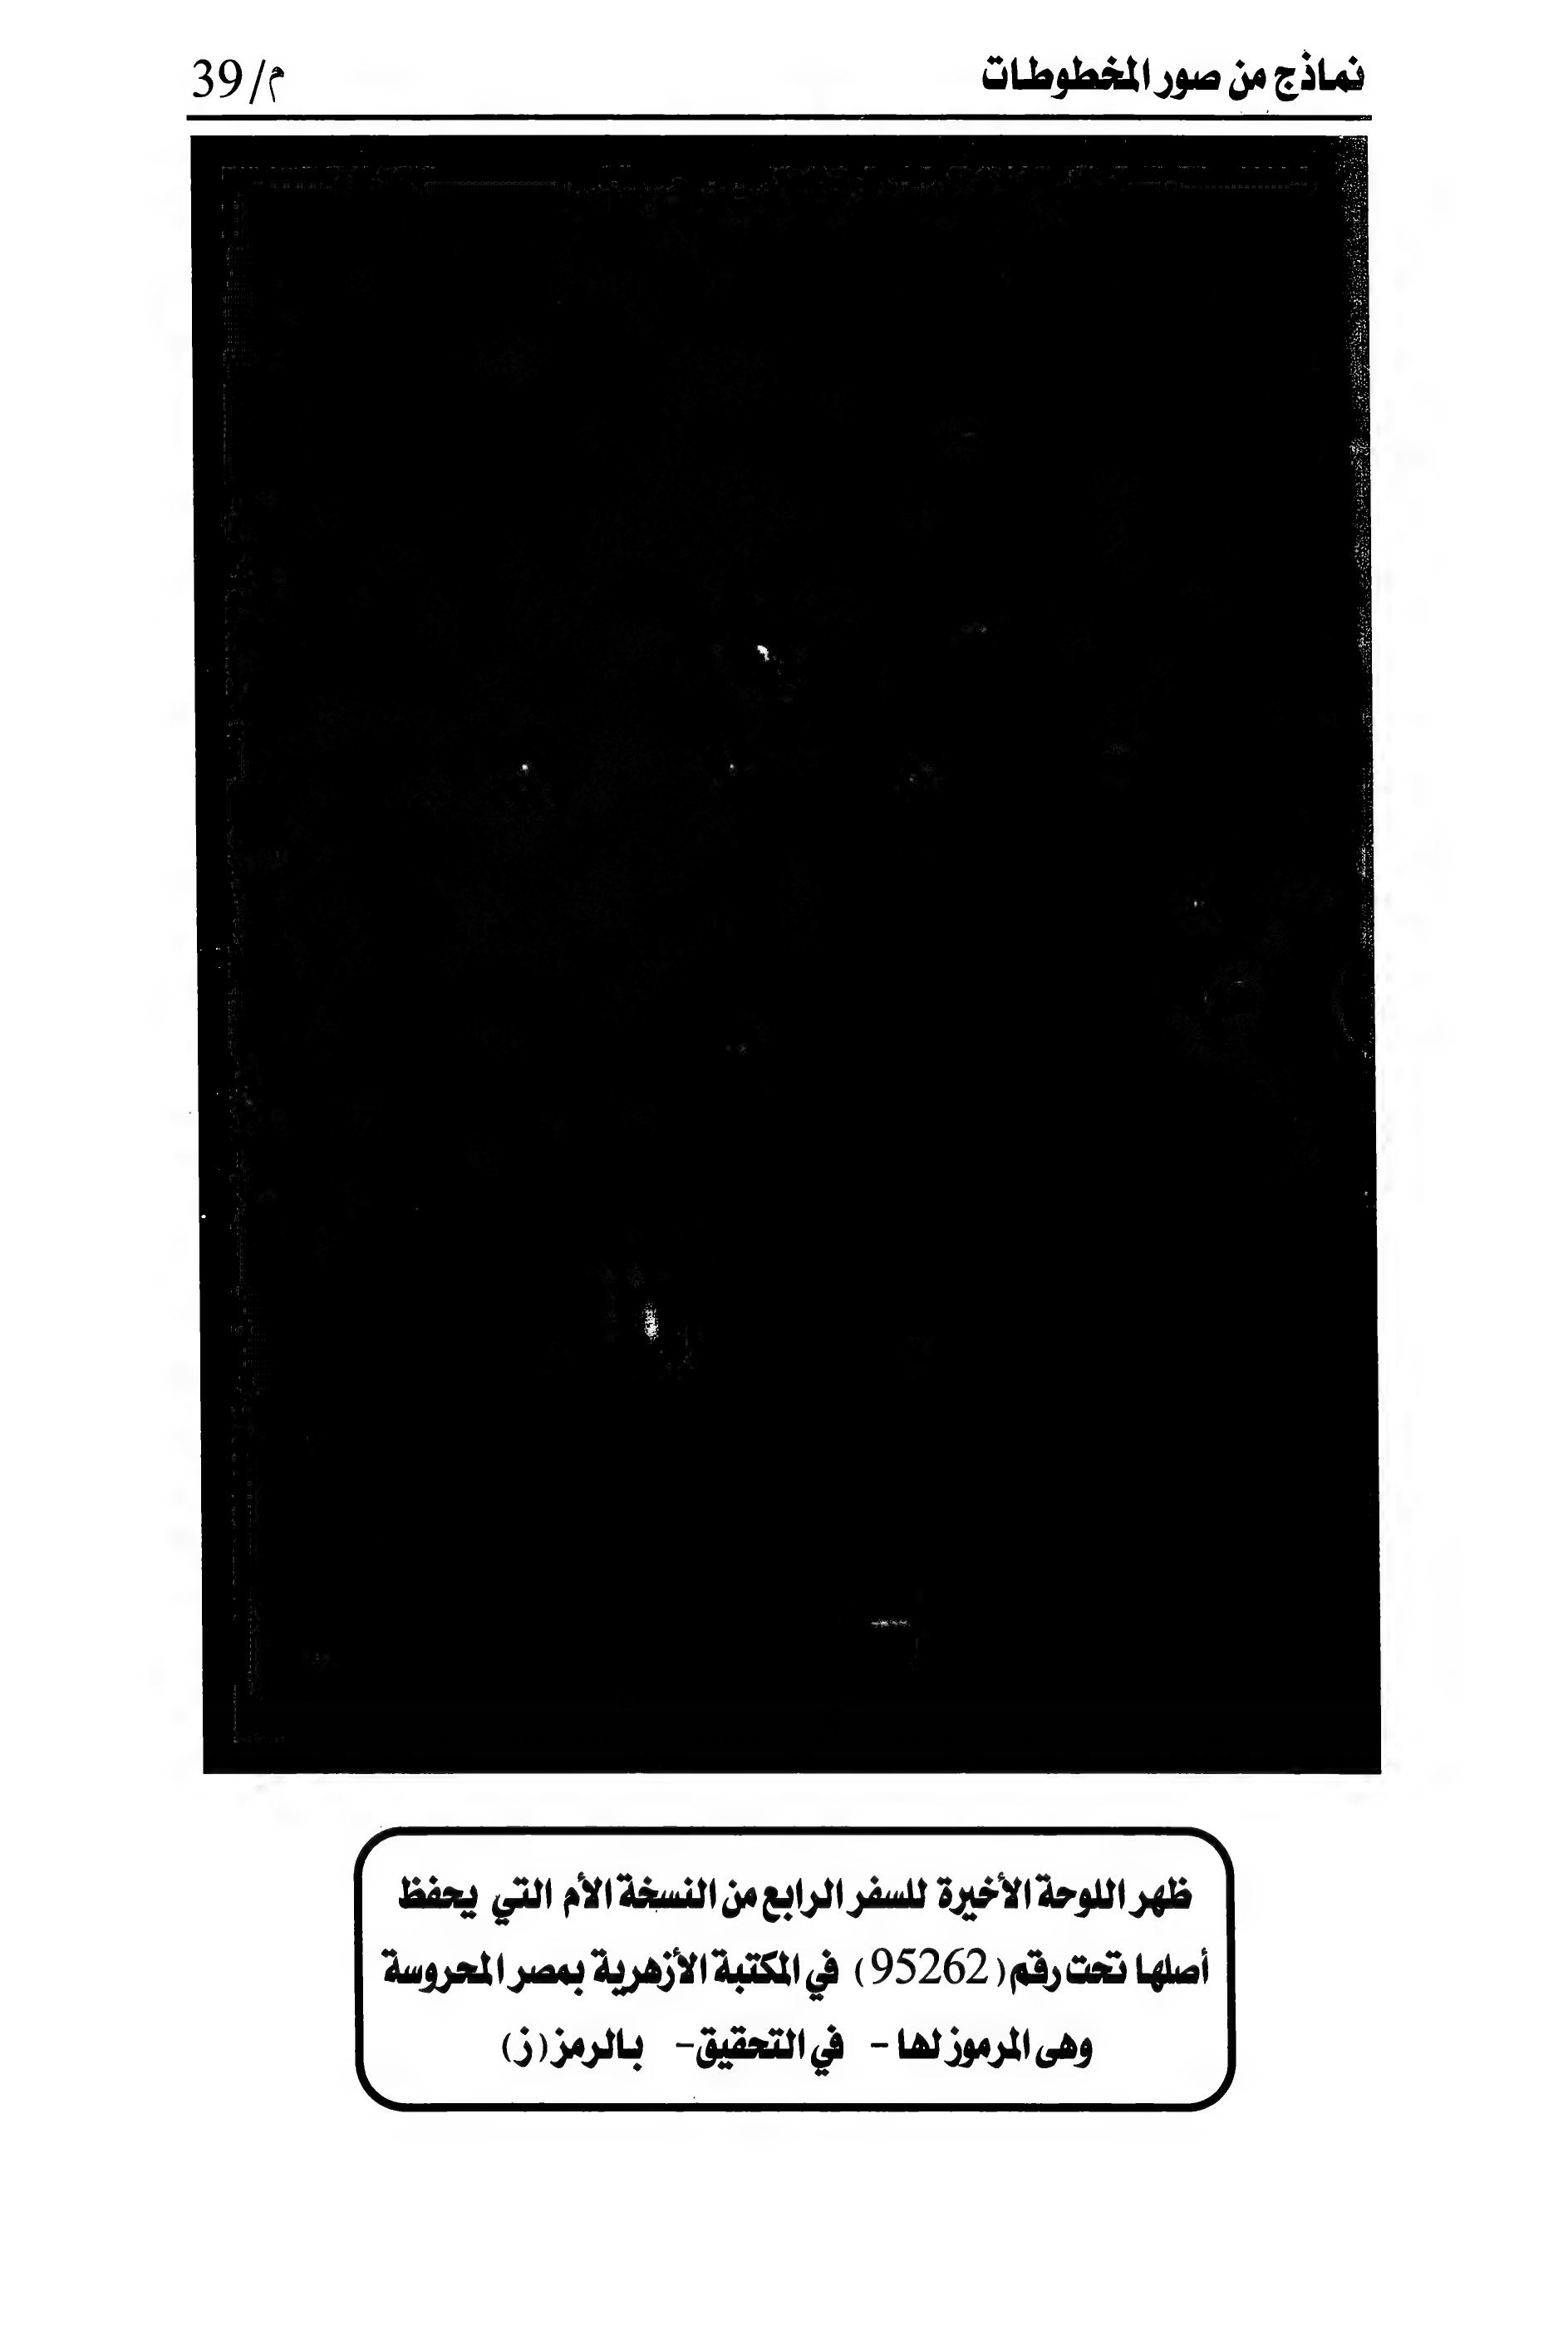 نماذج من صور المخطوطات
م/39
ظهر اللوحة الأخيرة للسفر الرابع من النسخة الأم التي يحفظ
أصلها تحت رقم (95262) في المكتبة الأزهرية بمصر المحروسة
وهى المرموز لها - في التحقيق- بالرمز (ز)